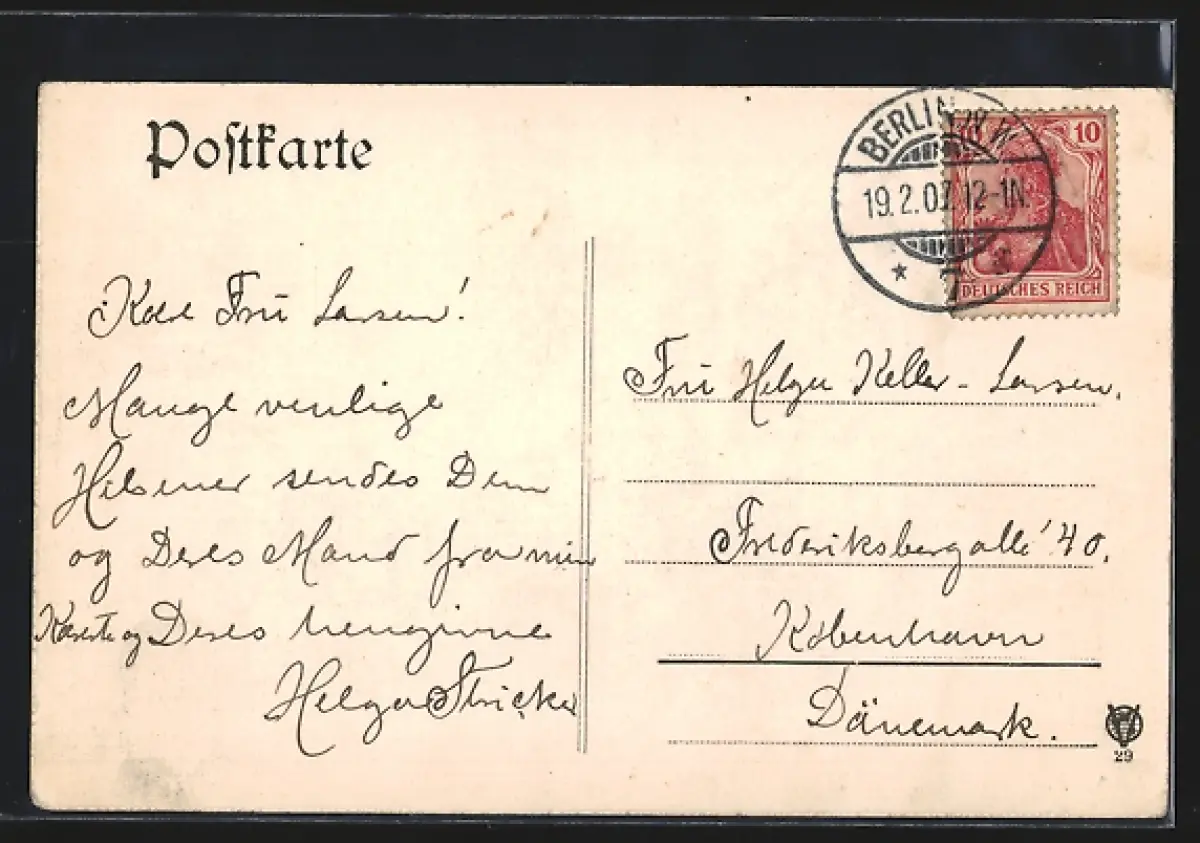 Postkarte
BERLIN N.W.
19.2.07. 12-1N.
* 7 *
10
DEUTSCHES REICH
Kære Frü Larsen!
Mange venlige
Hilsener sendes Dem
og Deres Mand fra min
Kæreste og Deres hengivne
Helga Stricker
Frü Helga Keller-Larsen.
Frederiksbergallé 40.
København
Dänemark.
29